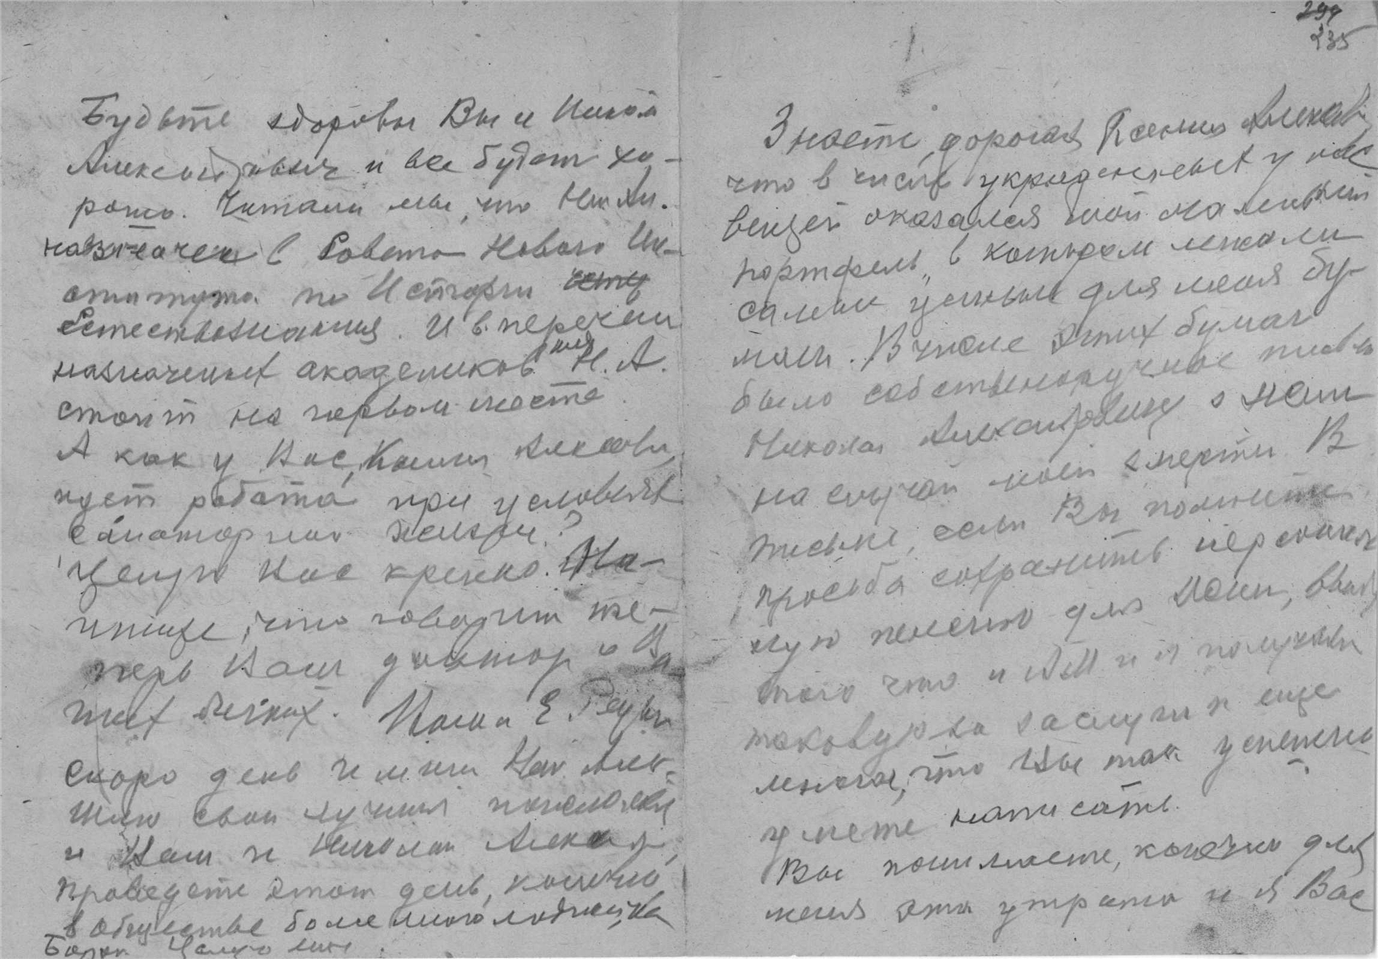 Будьте здоровы Вы и Никол.
Александрович и все будет хо-
рошо. Читали мы, что Ник. Ал.
назначен в Совет Нового Ин-
ститута по Истории есте
Естествознания. И в перечне
назначенных академиков имя Н. А.
стоит на первом месте.
А как у Вас, Ксения Алексан.,
идет работа при условиях
санаторной жизни?
Целую Вас крепко. На-
пишите, что говорит те-
перь Ваш доктор о Ва-
ших легких. Ваша Е.
Скоро день имени Ник. Алек.
Шлю свои лучшие пожелания
и Вам и Николаю Алексан.
Проведете этот день, конечно,
в обществе более многолюдном, на
Целую
294
235
1.
Знаете, дорогая Ксения Александ.,
что в числе украденных у нас
вещей оказался мой маленький
портфель, в котором лежали
самые ценные для меня бу-
маги. В числе этих бумаг
было собственноручное письмо
Николаю Александровичу о
на случай моей смерти. В
письме, если Вы помните,
просьба сохранить персональ-
ную пенсию для ввиду
того что и и я получили
таковую за заслуги и еще
многое, что Вы так успешно
умеете написать.
Вы понимаете, конечно для
меня эта утрата и я Вас